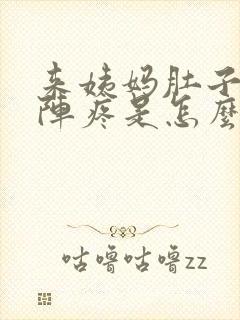 来姨妈肚子
陣疼是怎麼
咕噜咕噜zz